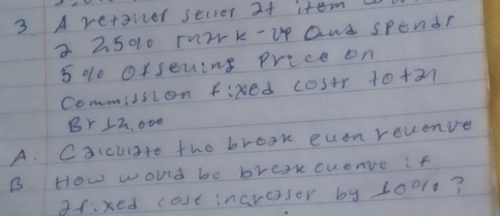 3. A retailer seller at item
a 25% mark-up and spends
5% of seuing price on
Commission fixed costr total
Br 12,000
A. Calculate the break even revenve
B. How would be break evenve if
a fixed cost increaser by 10%?